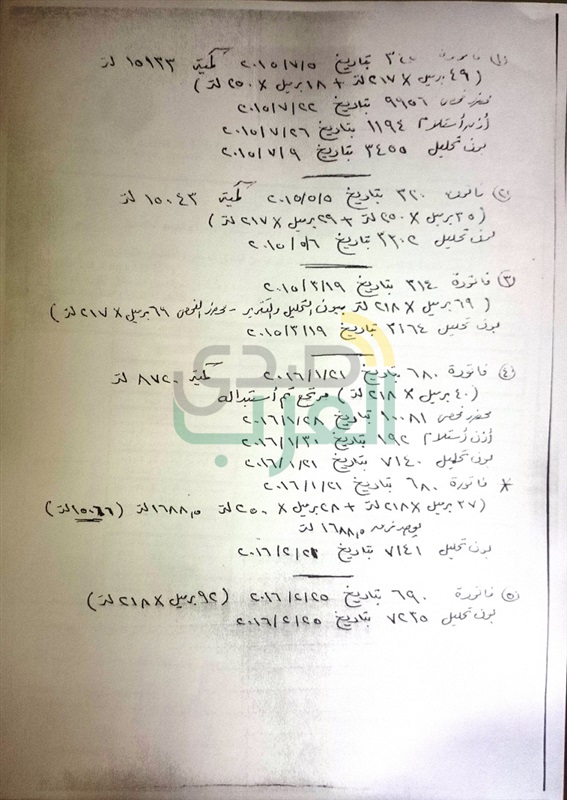 (١) فاتورة ٣٤٠ بتاريخ ٢٠١٥/٧/٥ كمية ١٥١٣٣ لتر
(٤٩ برميل × ٢١٧ لتر + ١٨ برميل × ٢٥٠ لتر)
محضر فحص ٩٩٥٦ بتاريخ ٢٠١٥/٧/٢٢
أذن أستلام ١١٩٤ بتاريخ ٢٠١٥/٧/٢٦
بون تحليل ٣٤٥٥ بتاريخ ٢٠١٥/٧/٩
(٢) فاتورة ٣٢٠ بتاريخ ٢٠١٥/٥/٥ كمية ١٥٠٤٣ لتر
(٣٥ برميل × ٢٥٠ لتر + ٢٩ برميل × ٢١٧ لتر)
بون تحليل ٣٣٠٢ بتاريخ ٢٠١٥/٥/٦
(٣) فاتورة ٣١٤ بتاريخ ٢٠١٥/٣/١٩
(٦٩ برميل × ٢١٨ لتر ببون التحليل والتقرير - محضر الفحص ٦٩ برميل × ٢١٧ لتر)
بون تحليل ٣١٦٤ بتاريخ ٢٠١٥/٣/١٩
(٤) فاتورة ٦٨٠ بتاريخ ٢٠١٦/١/٢١ كمية ٨٧٢٠ لتر
(٤٠ برميل × ٢١٨ لتر) مرتجع تم أستبداله
محضر فحص ١٠٠٨١ بتاريخ ٢٠١٦/١/٢٨
أذن أستلام ١٩٢ بتاريخ ٢٠١٦/١/٣٠
بون تحليل ٧١٤٠ بتاريخ ٢٠١٦/١/٢١
* فاتورة ٦٨٠ بتاريخ ٢٠١٦/١/٢١
(٣٧ برميل × ٢١٨ لتر + ٢٨ برميل × ٢٥٠ لتر (١٥٠٦٦ لتر)
يوجد فرق ١٦٨٨٫٥ لتر
بون تحليل ٧١٤١ بتاريخ ٢٠١٦/٢/٢١
(٥) فاتورة ٦٩٠ بتاريخ ٢٠١٦/٢/٢٥ (٩٢ برميل × ٢١٨ لتر)
بون تحليل ٧٢٣٥ بتاريخ ٢٠١٦/٢/٢٥
صدى
العرب